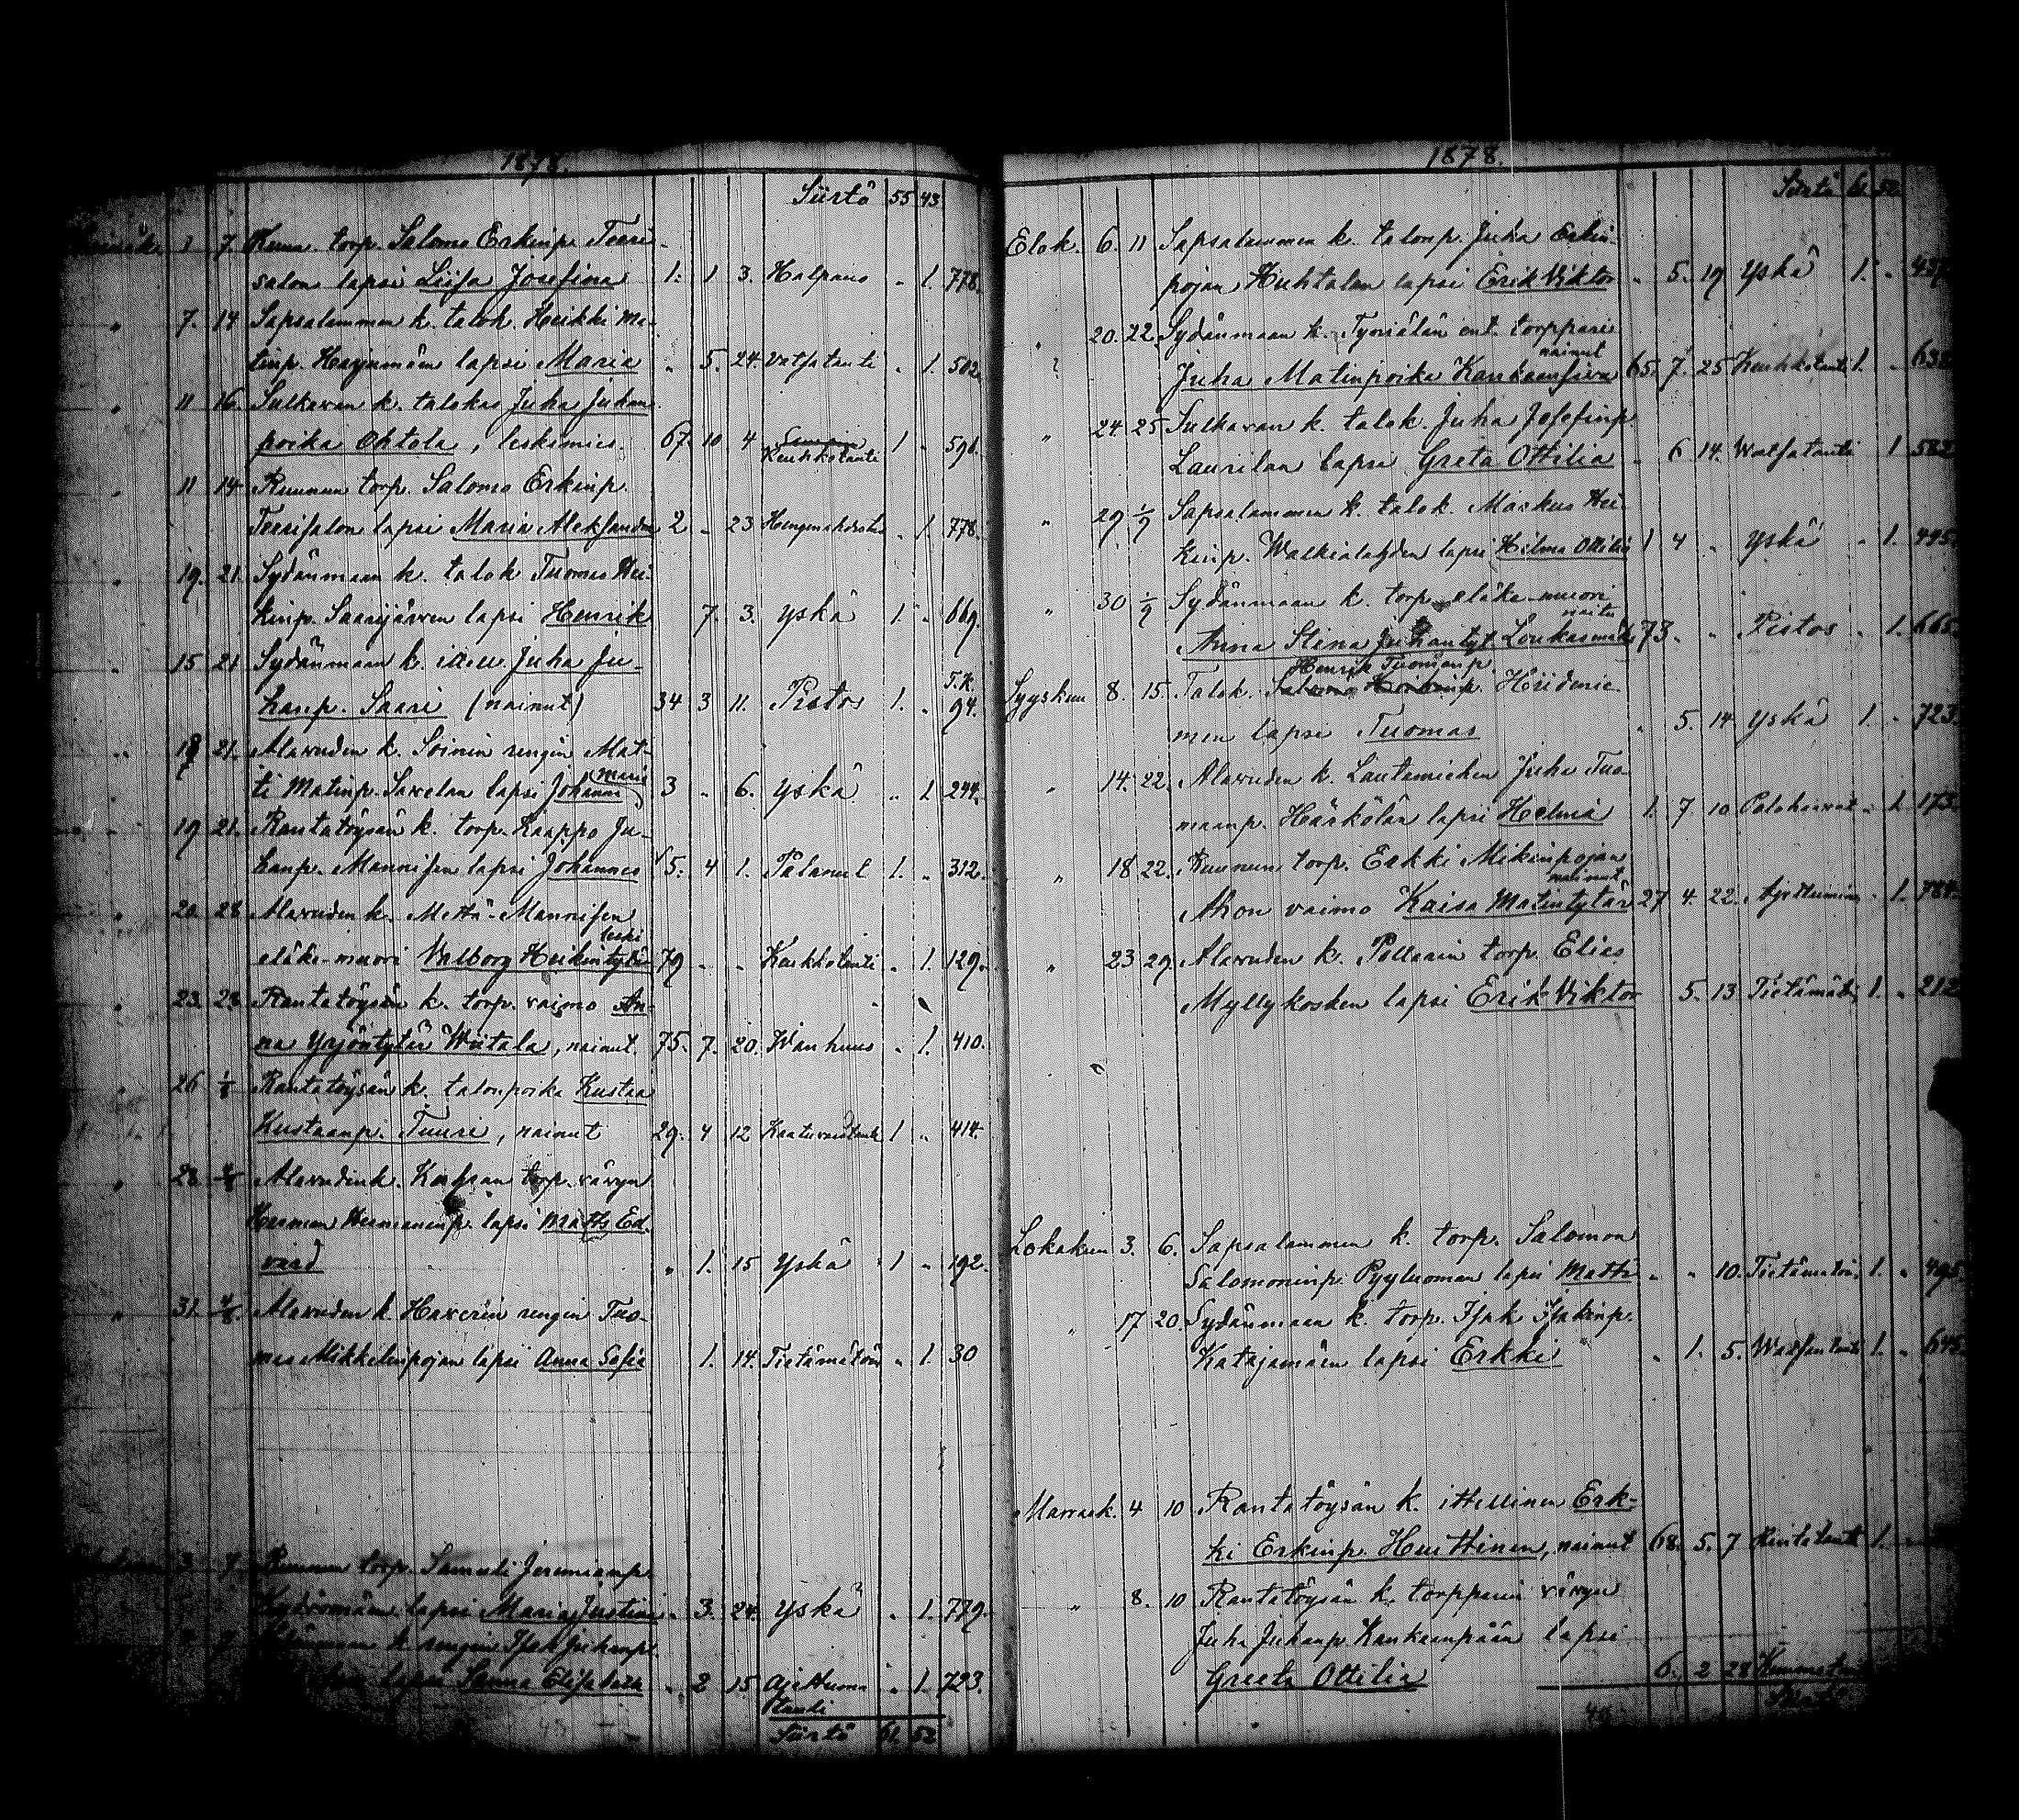 1878.
Siirto 55 43
1 7. torp. Salomo Erkinp. Teeri-
salon lapsi Liisa Josefina 1. 1 3. Halpaus „ 1. 778.
„ 7. 14 Sapsalammen k. talok. Heikki Ma-
tinp. Harjumäen lapsi Maria „ 5. 24. Vatsatauti „ 1. 502.
„ 11 16. Sulkavan k. talokas Juha Juhan-
poika Ohtola, leskimies. 67. 10 4 Keuhkotauti 1 „ 596.
„ 11 14 Ruunan torp. Salomo Erkinp.
Teerisalon lapsi Maria Aleksandra 2 „ 23 „ 1. 778.
„ 19. 21. Sydänmaan k. talok Tuomas Hei-
kinp. Saarijärven lapsi Henrik 7. 3. Yskä 1. „ 669.
15 21 Sydänmaan k. Juha Ju-
hanp. Saari (nainut) 34 3 11. Pistos 1. „ T.K. 94.
„ 19 21. Alavuden k. Soinin rengin Mat-
ti Matinp. Savelan lapsi Johanna Maria 3 „ 6. Yskä „ 1. 244.
19 21. Rantatöysän k. torp. Kaappo Ju-
hanp. Mannisen lapsi Johannes 5. 4 1. Palanut 1. „ 312.
„ 20. 28 Alavuden k. Mettä-Mannisen
eläke-muori Valborg Heikintytär leski 79 „ „ Keuhkotauti „ 1. 129.
„ 23. 28. Rantatöysän k. torp. vaimo An-
na Yrjöntytär Wiitala, nainut. 75. 7. 20. Wanhuus „ 1. 410.
„ 26 1/8 Rantatöysän k. talonpoika Kustaa
Kustaanp. Tuuri, nainut 29. 4 12 Kaatuvaistauti 1 „ 414.
„ 28. 4/8 Alavuden k. torp. vävyn
Herman Hermaninp. lapsi Matts Ed-
vard „ 1. 15 Yskä 1 „ 192.
„ 31. 4/8. Alavuden k. Haverin rengin Tuo-
mas Mikkelinpojan lapsi Anna Sofia 1. 14. Tietämätöin „ 1. 30
3 7. Ruunan torp. Samuli Jeremianp.
lapsi Maria Justina „ 3. 24. Yskä „ 1. 779.
7. k. rengin Isak Juhanp.
lapsi Sanna Elisabeta „ 2 15 Ajettuma „ 1. 723.
tauti
Siirto 61. 52
1878.
Siirto 61. 52.
Elok. 6. 11 Sapsalammen k. talonp. Juha Erkin-
pojan Huhtalan lapsi Erik Viktor „ 5. 19 Yskä 1. „
„ 20. 22. Sydänmaan k. ent. torppari
Juha Matinpoika nainut 65. 7. 25 Keuhkotauti 1. „
„ 24. 25 Sulkavan k. talok. Juha Josefinp.
Laurilan lapsi Greta Ottilia „ 6 14. Watsatauti 1 582
„ 29 1/9 Sapsalammen k. talok. Markus Hei-
kinp. Walkialahden lapsi Hilma Ottilia 1 4 „ Yskä „ 1. 495.
„ 30 1/9 Sydänmaan k. torp. eläke-muori
Anna Stina Juhantyt. Loukasmäki naitu 73. „ „ Pistos „ 1. 665.
Syyskuu 8. 15. Talok. Henrik Tuomanp. Hiidenie-
men lapsi Tuomas „ 5. 14. Yskä 1. „ 723.
„ 14. 22. Alavuden k. Lautamiehen Juha Tuo-
maanp. Härkölän lapsi Helmia 1. 7 10 Palohaavat „ 1 173.
„ 18 22. Ruunan torp. Erkki Mikinpojan
Ahon vaimo Kaisa Matintytär nainut 27 4. 22. Ajettumin „ 1. 784.
„ 23 29. Alavuden k. Pollarin torp. Elias
Myllykosken lapsi Erik Viktor 5. 13. Tietämätöin 1. „ 212
Lokakuu 3. 6. Sapsalammen k. torp. Salomon
Salomoninp. Pyyluoman lapsi Matti „ „ 10. Tietämätöin 1. „ 495.
„ 17 20. Sydänmaan k. torp. Isak Isakinp.
Katajamäen lapsi Erkki „ 1. 5. Watsantauti 1. „ 645.
Marrask. 4 10 Rantatöysän k. itsellinen Erk-
ki Erkinp. Huttinen, nainut 68. 5. 7 Rintatauti 1.
„ 8. 10 Rantatöysän k. torpparin vävyn
Juha Juhanp. Kankaanpään lapsi
Greeta Ottilia 6. 2 28
Siirto